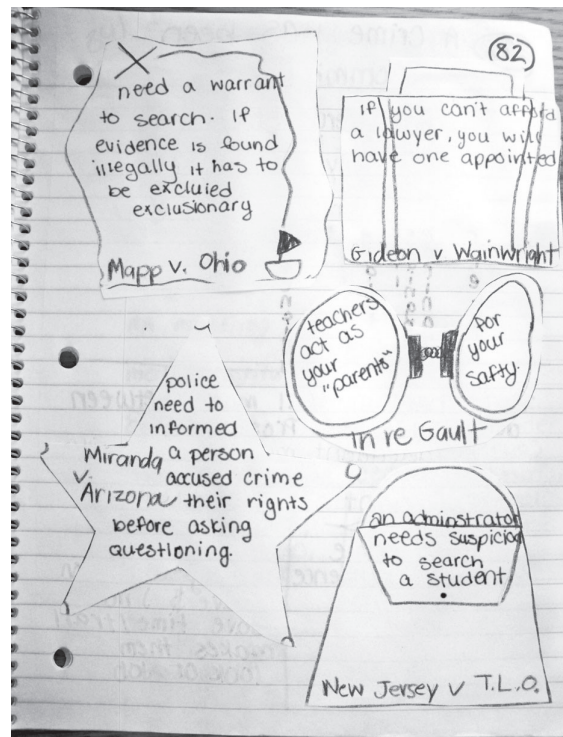 (82)
need a warrant
to search. If
evidence is found
illegally it has to
be excluied
exclusionary
Mapp v. Ohio
If you can't afford
a lawyer, you will
have one appointed
Gideon v Wainwright
teachers
act as
your
"parents"
for
your
safty.
In re Gault
police
need to
informed
Miranda a person
v. accused crime
Arizona their rights
before asking
questioning.
an adminstrator
needs suspicion
to search
a student
New Jersey v T.L.O.